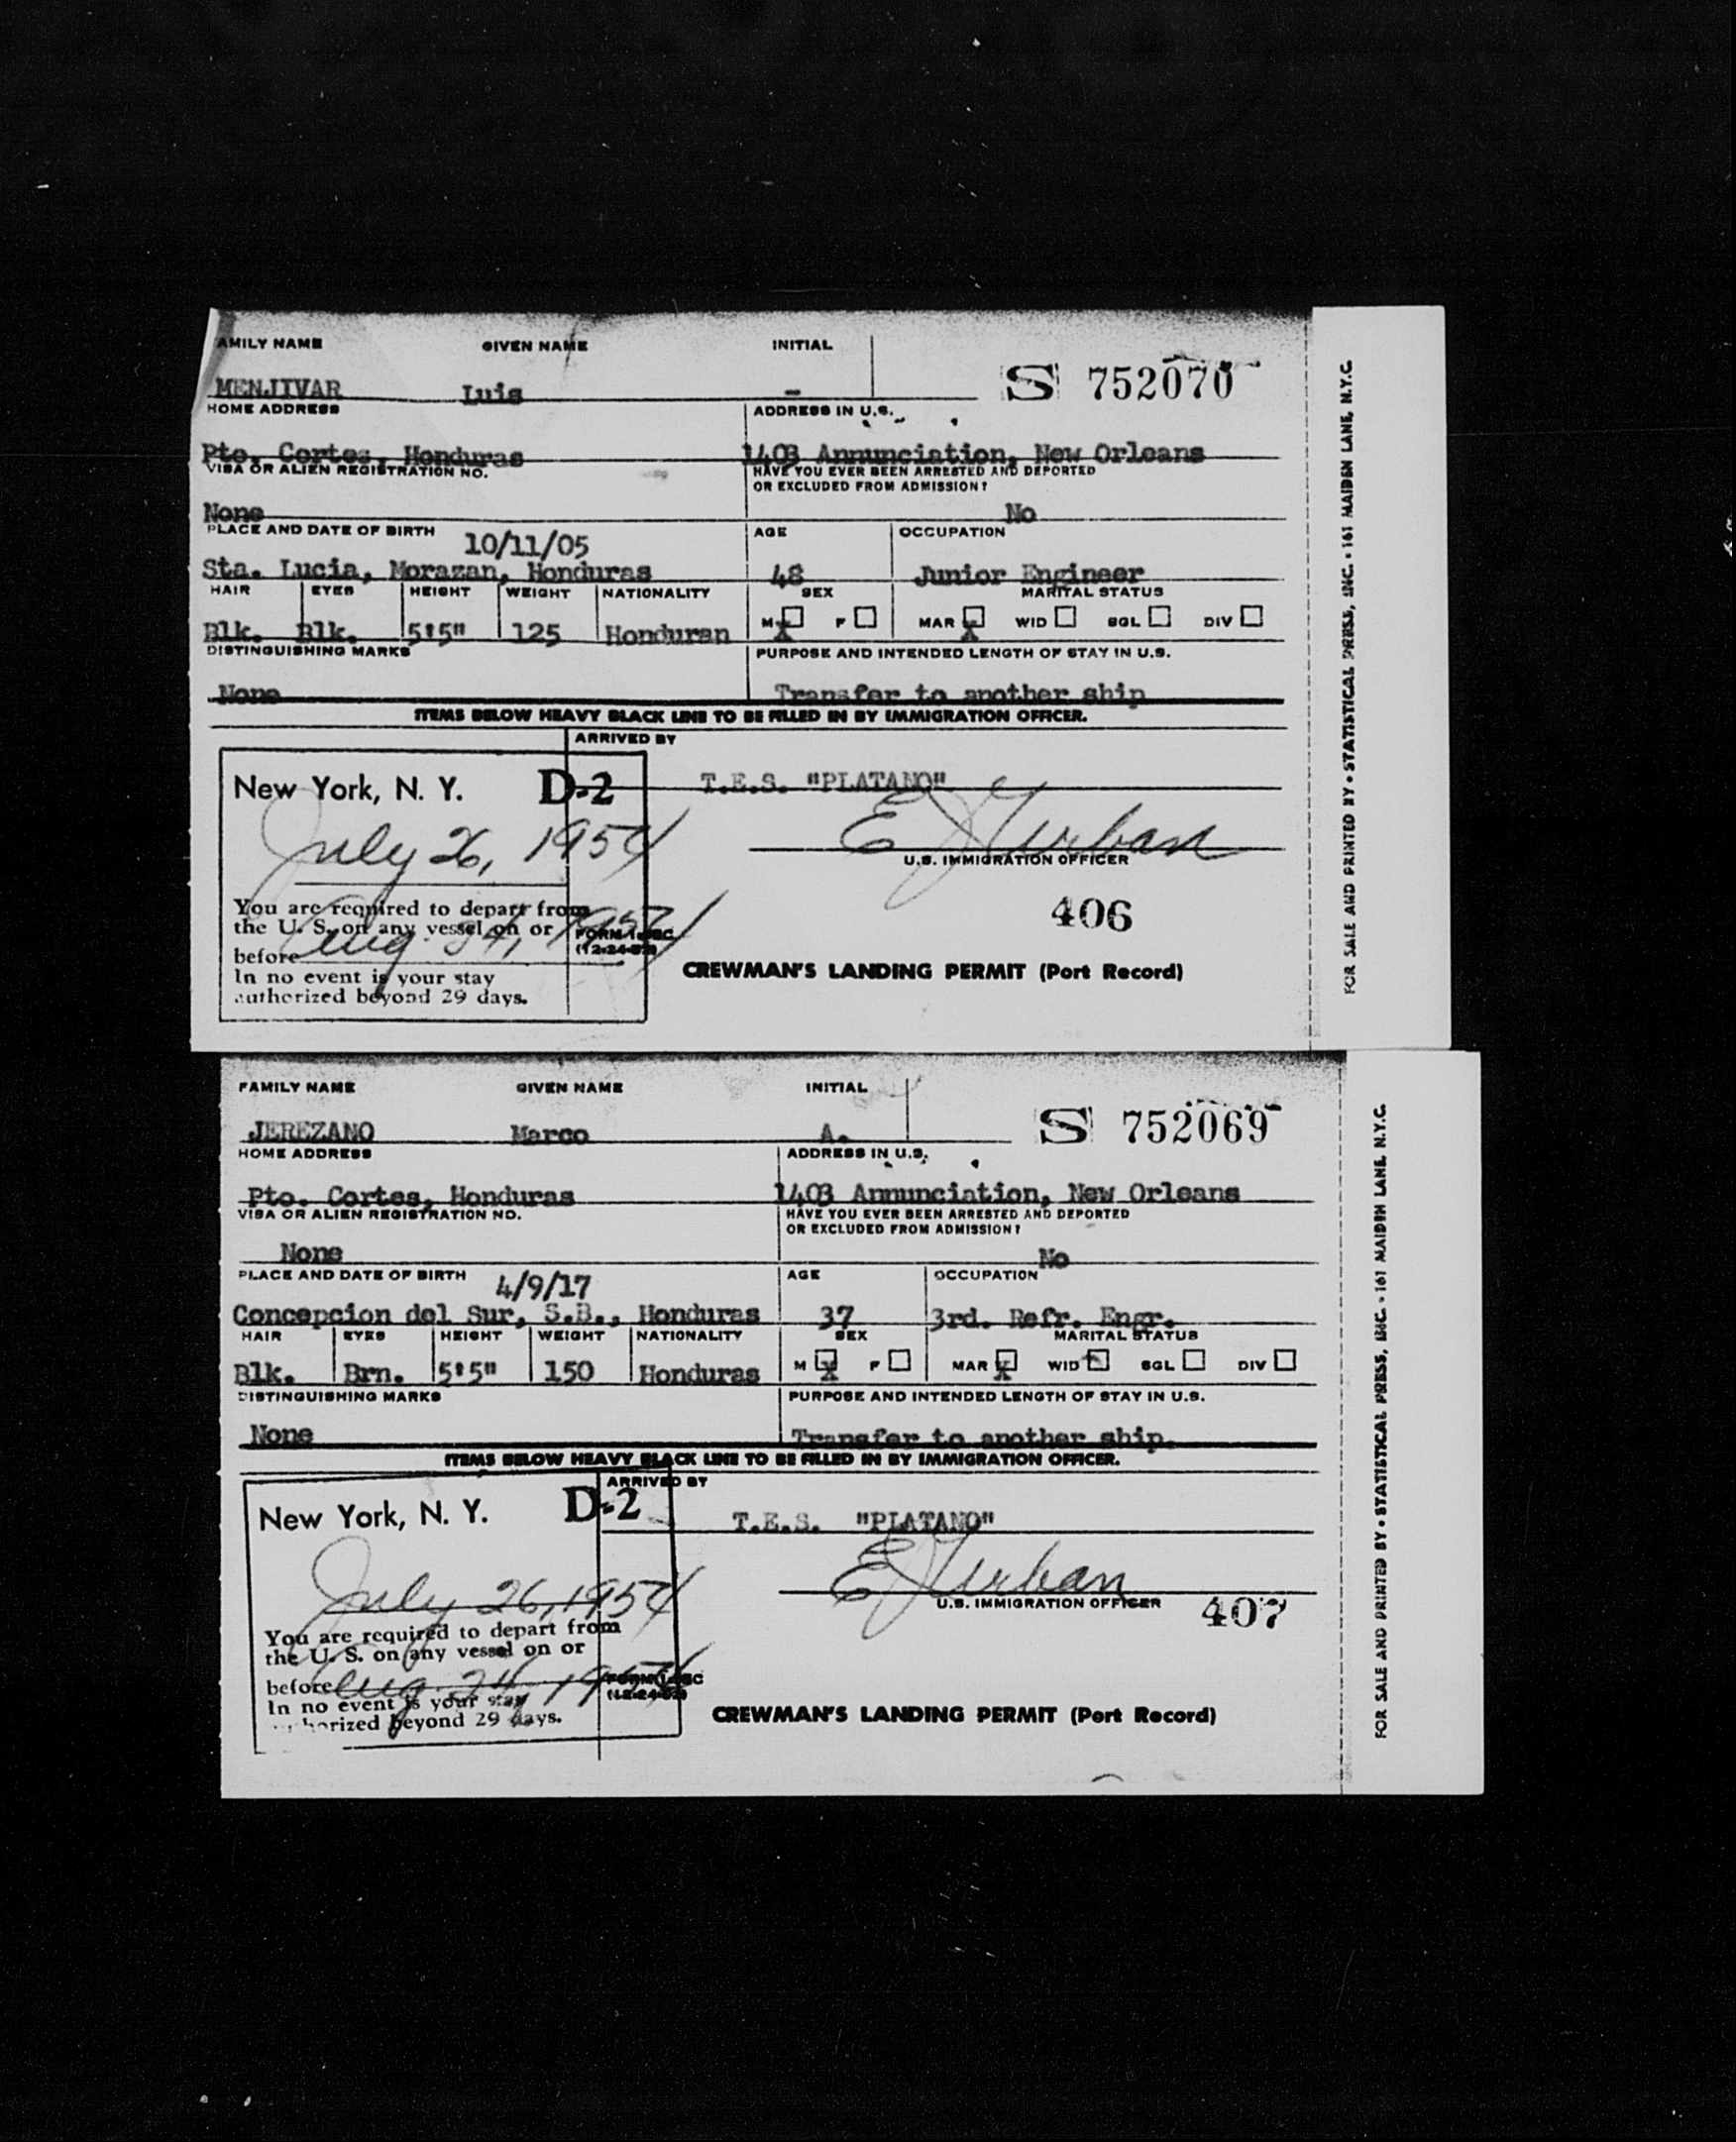 AMILY NAME GIVEN NAME INITIAL
MENJIVAR Luis - S 752070
HOME ADDRESS ADDRESS IN U.S.
Pto. Cortes, Honduras 1403 Annunciation, New Orleans
VISA OR ALIEN REGISTRATION NO. HAVE YOU EVER BEEN ARRESTED AND DEPORTED
OR EXCLUDED FROM ADMISSION?
None No
PLACE AND DATE OF BIRTH 10/11/05 AGE OCCUPATION
Sta. Lucia, Morazan, Honduras 48 Junior Engineer
HAIR EYES HEIGHT WEIGHT NATIONALITY SEX MARITAL STATUS
Blk. Blk. 5'5" 125 Honduran M X F MAR X WID SGL DIV
DISTINGUISHING MARKS PURPOSE AND INTENDED LENGTH OF STAY IN U.S.
None Transfer to another ship
ITEMS BELOW HEAVY BLACK LINE TO BE FILLED IN BY IMMIGRATION OFFICER.
ARRIVED BY
New York, N. Y. D-2 T.E.S. "PLATANO"
July 26, 1954 E J Urban
U.S. IMMIGRATION OFFICER
You are required to depart from 406
the U. S. on any vessel on or
before Aug. 24, 1954 FORM
(12-24-52)
In no event is your stay CREWMAN'S LANDING PERMIT (Port Record)
authorized beyond 29 days.
FOR SALE AND PRINTED BY • STATISTICAL PRESS, INC. • 161 MAIDEN LANE, N.Y.C.
FAMILY NAME GIVEN NAME INITIAL
JEREZANO Marco A. S 752069
HOME ADDRESS ADDRESS IN U.S.
Pto. Cortes, Honduras 1403 Annunciation, New Orleans
VISA OR ALIEN REGISTRATION NO. HAVE YOU EVER BEEN ARRESTED AND DEPORTED
OR EXCLUDED FROM ADMISSION?
None No
PLACE AND DATE OF BIRTH 4/9/17 AGE OCCUPATION
Concepcion del Sur, S.B., Honduras 37 3rd. Refr. Engr.
HAIR EYES HEIGHT WEIGHT NATIONALITY SEX MARITAL STATUS
Blk. Brn. 5'5" 150 Honduras M X F MAR X WID SGL DIV
DISTINGUISHING MARKS PURPOSE AND INTENDED LENGTH OF STAY IN U.S.
None Transfer to another ship.
ITEMS BELOW HEAVY BLACK LINE TO BE FILLED IN BY IMMIGRATION OFFICER.
ARRIVED BY
New York, N. Y. D-2 T.E.S. "PLATANO"
July 26, 1954 E J Urban
U.S. IMMIGRATION OFFICER 407
You are required to depart from
the U. S. on any vessel on or
before Aug. 24 1954 FORM
(12-24-52)
In no event is your stay
authorized beyond 29 days. CREWMAN'S LANDING PERMIT (Port Record)
FOR SALE AND PRINTED BY • STATISTICAL PRESS, INC. • 161 MAIDEN LANE, N.Y.C.